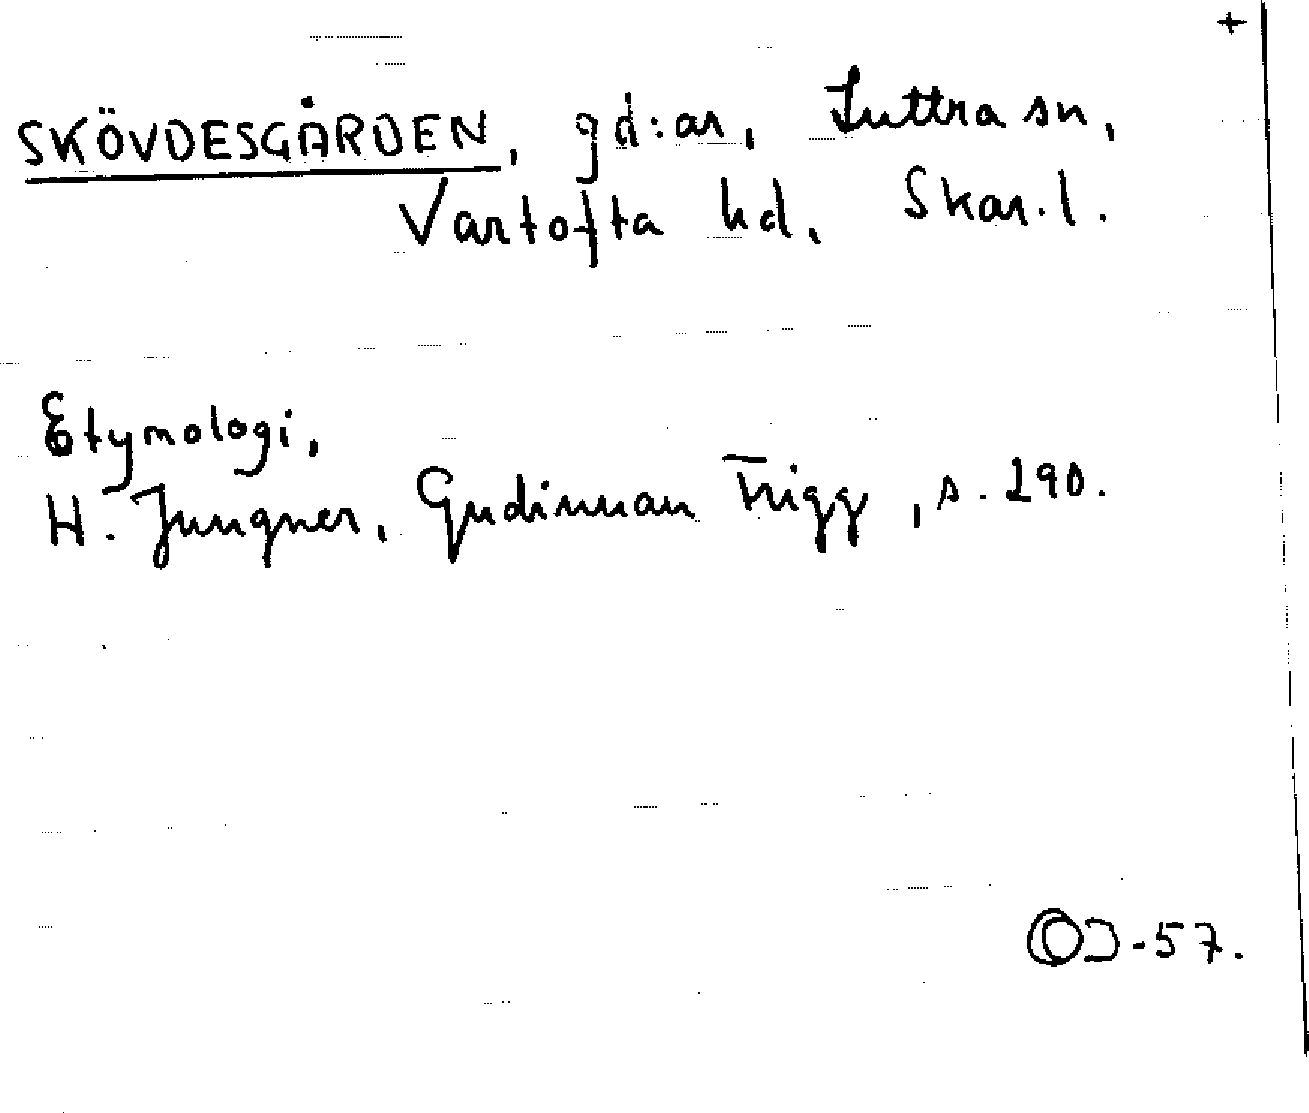 +
SKÖVDESGÅRDEN, gd:ar, Luttra sn,
Vartofta hd, Skar.l.
Etymologi,
H. Jungner, Gudinnan Frigg, s. 290.
-57.